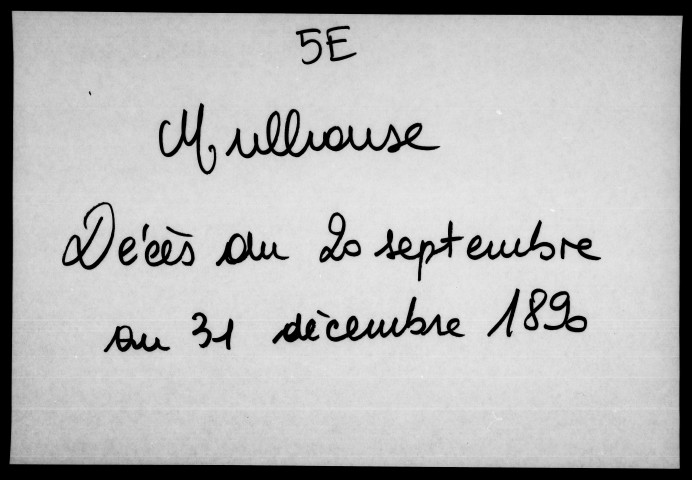 5E
Mulhouse
Décès du 20 septembre
au 31 décembre 1890